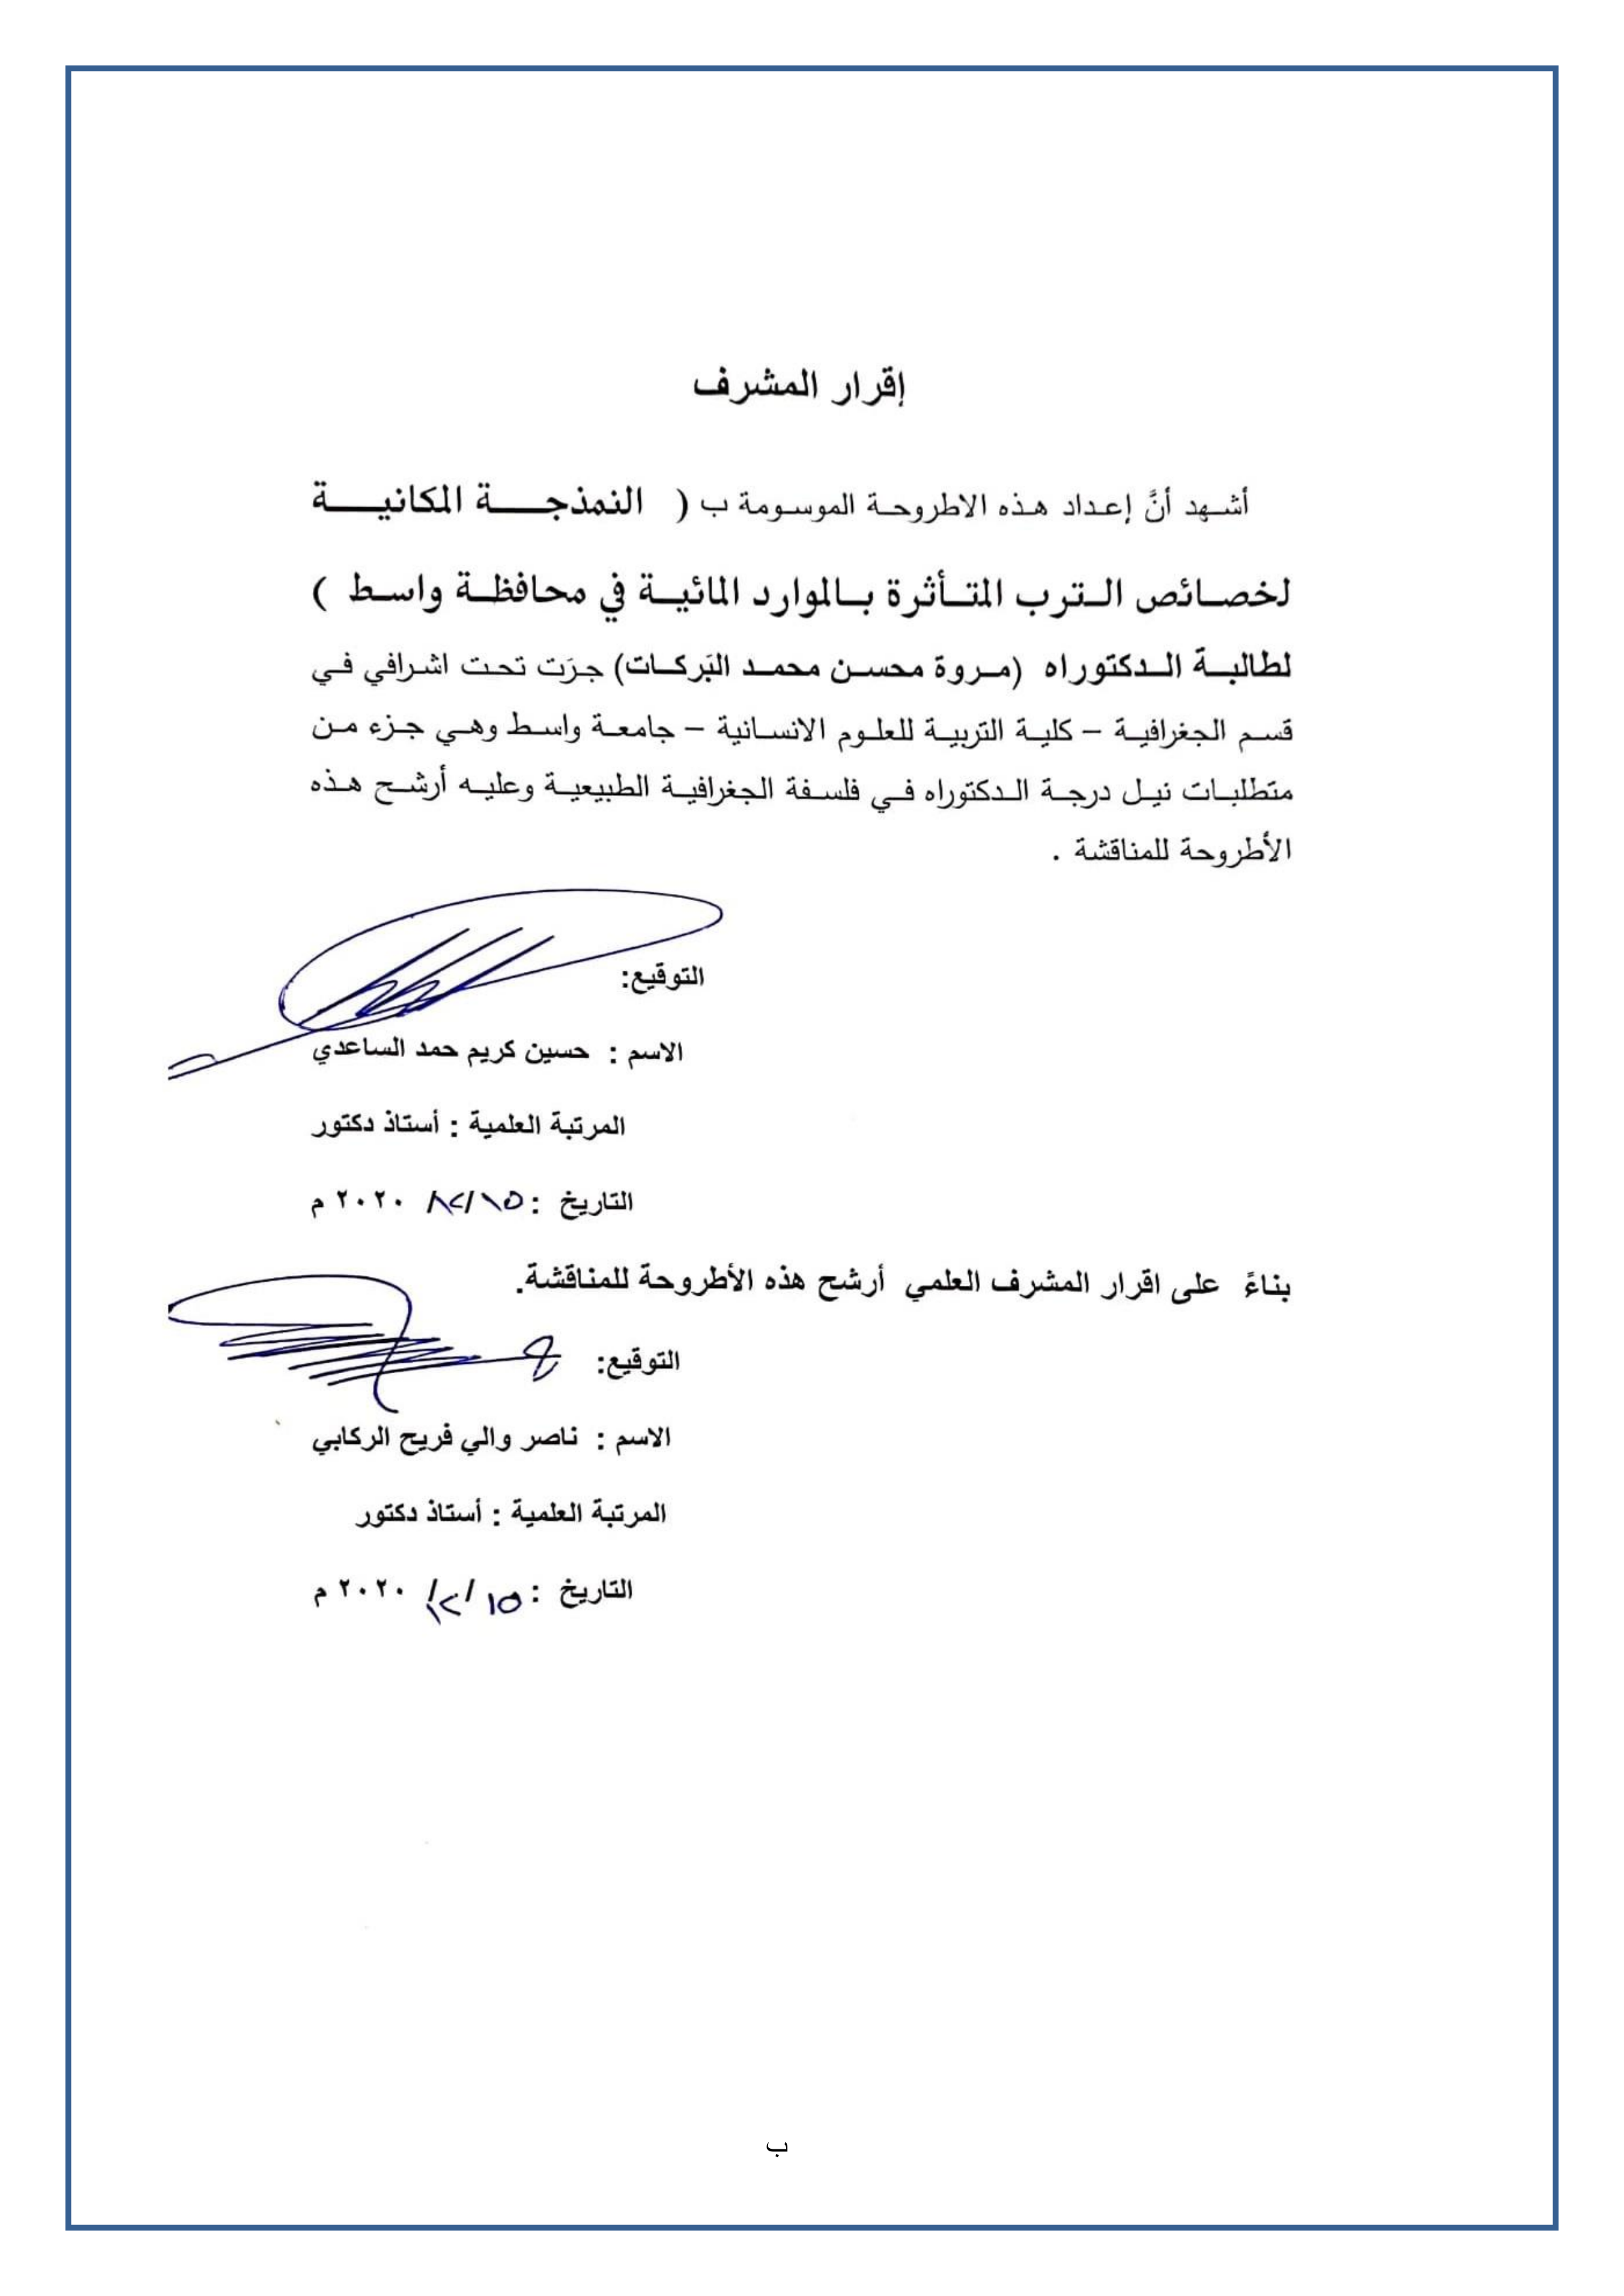 إقرار المشرف
أشهد أنَّ إعداد هذه الاطروحة الموسومة ب ( النمذجة المكانية
لخصائص الترب المتأثرة بالموارد المائية في محافظة واسط )
لطالبة الدكتوراه (مروة محسن محمد البَركات) جرَت تحت اشرافي في
قسم الجغرافية – كلية التربية للعلوم الانسانية – جامعة واسط وهي جزء من
متطلبات نيل درجة الدكتوراه في فلسفة الجغرافية الطبيعية وعليه أرشح هذه
الأطروحة للمناقشة .
التوقيع:
الاسم : حسين كريم حمد الساعدي
المرتبة العلمية : أستاذ دكتور
التاريخ : ١٥/١٢/ ٢٠٢٠ م
بناءً على اقرار المشرف العلمي أرشح هذه الأطروحة للمناقشة.
التوقيع:
الاسم : ناصر والي فريح الركابي
المرتبة العلمية : أستاذ دكتور
التاريخ : ١٥ /١٢/ ٢٠٢٠ م
ب